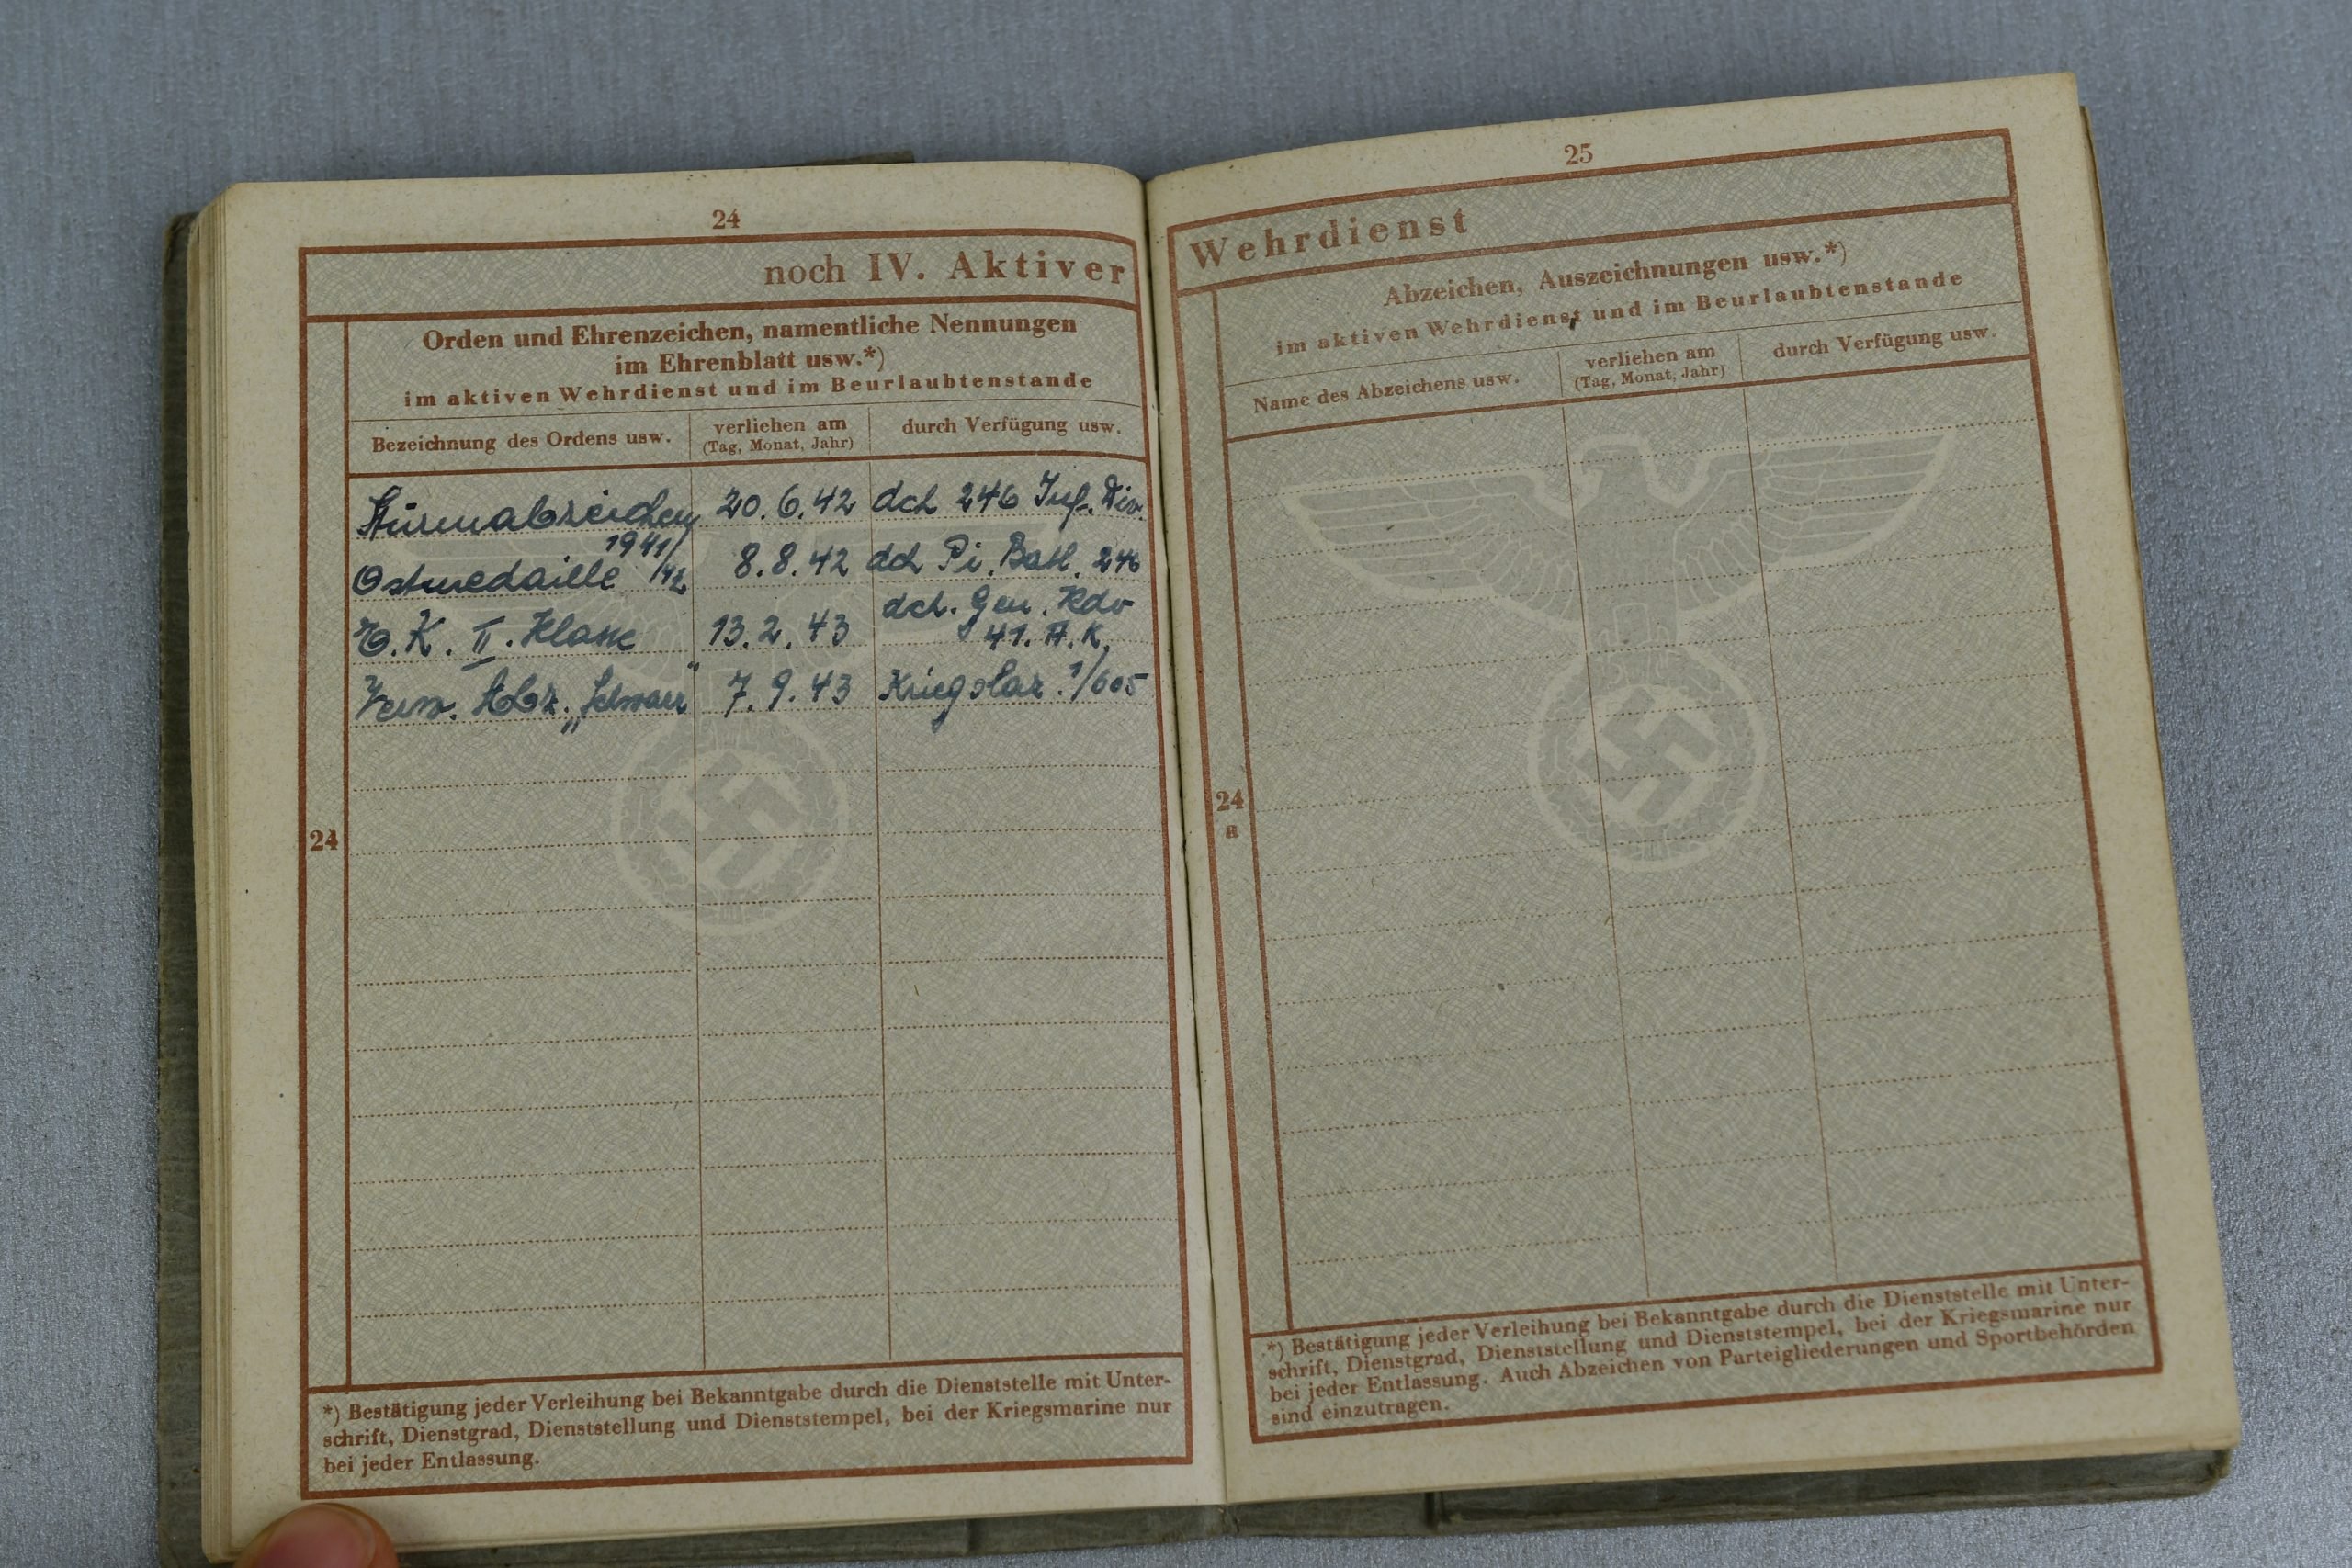 24
noch IV. Aktiver
Orden und Ehrenzeichen, namentliche Nennungen
im Ehrenblatt usw.*)
im aktiven Wehrdienst und im Beurlaubtenstande
Bezeichnung des Ordens usw.
verliehen am
(Tag, Monat, Jahr)
durch Verfügung usw.
Sturmabzeichen 20.6.42 dch 246 Inf. Div.
Ostmedaille 1941/42 8.8.42 dch Pi. Batl. 246
E.K. II. Klasse 13.2.43 dch. Gen. Kdo
41. A.K.
Verw. Abz. „Schwarz" 7.9.43 Kriegslaz. 1/605
24
*) Bestätigung jeder Verleihung bei Bekanntgabe durch die Dienststelle mit Unter-
schrift, Dienstgrad, Dienststellung und Dienststempel, bei der Kriegsmarine nur
bei jeder Entlassung.
25
Wehrdienst
Abzeichen, Auszeichnungen usw.*)
im aktiven Wehrdienst und im Beurlaubtenstande
Name des Abzeichens usw.
verliehen am
(Tag, Monat, Jahr)
durch Verfügung usw.
24
a
*) Bestätigung jeder Verleihung bei Bekanntgabe durch die Dienststelle mit Unter-
schrift, Dienstgrad, Dienststellung und Dienststempel, bei der Kriegsmarine nur
bei jeder Entlassung. Auch Abzeichen von Parteigliederungen und Sportbehörden
sind einzutragen.